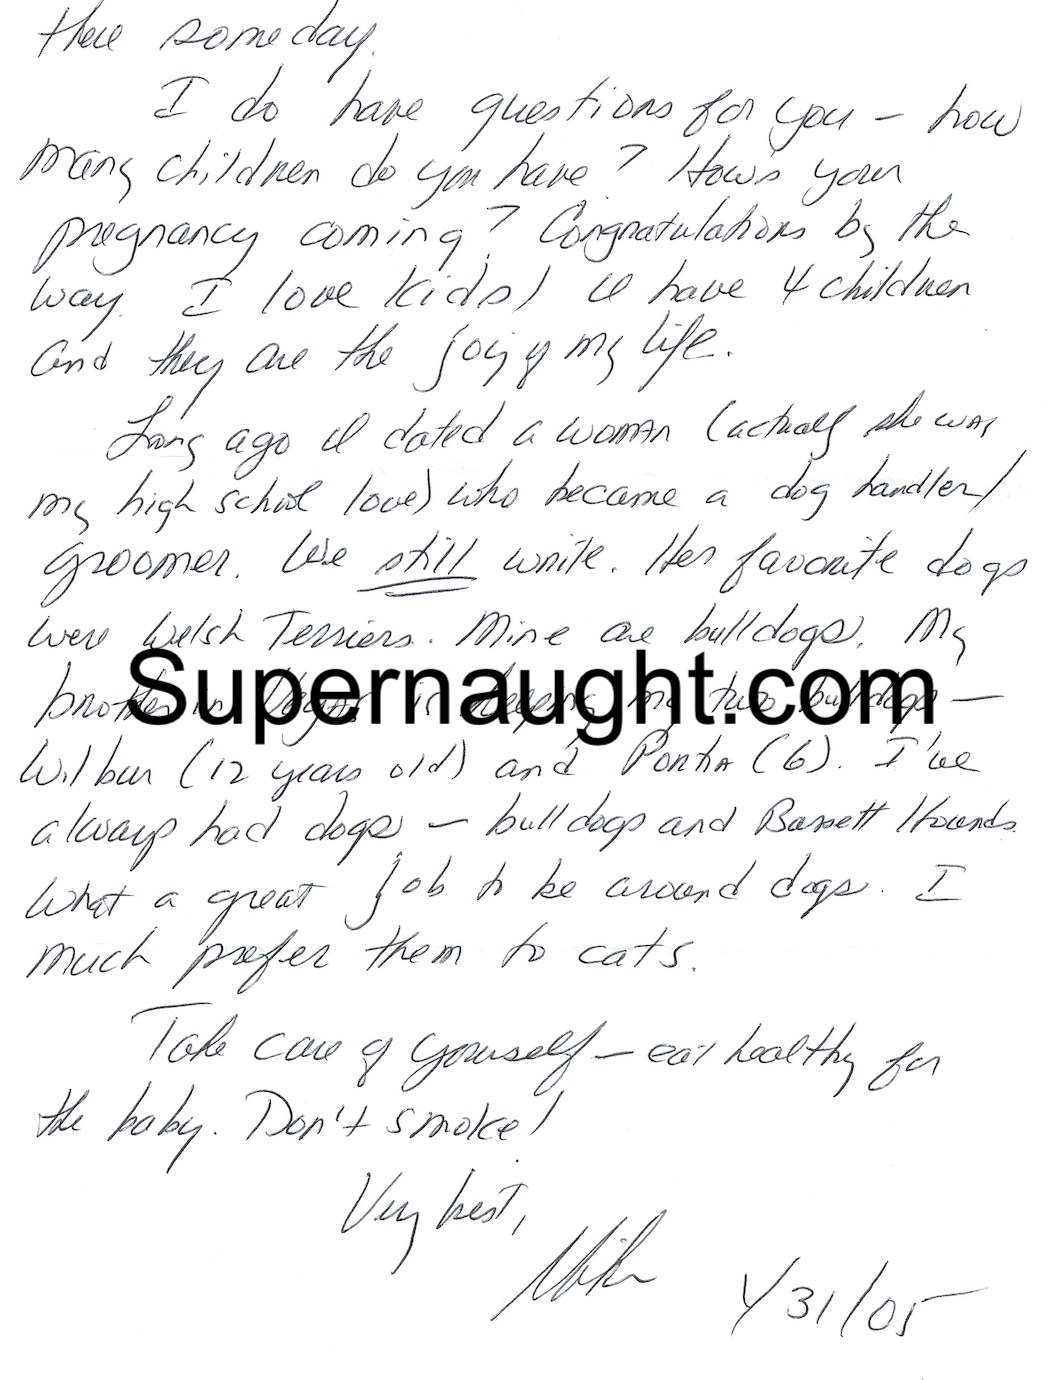 there someday.
I do have questions for you – how
many children do you have? How's your
pregnancy coming? Congratulations by the
way. I love kids! I have 4 children
and they are the joy of my life.
Long ago I dated a woman (actually she was
my high school love) who became a dog handler/
groomer. We still write. Her favorite dogs
were Welsh Terriers. Mine are bulldogs. My
brother in is keeping my two bulldogs –
Supernaught.com
Wilbur (12 years old) and Portia (6). I've
always had dogs – bulldogs and Bassett Hounds.
What a great job to be around dogs. I
much prefer them to cats.
Take care of yourself – eat healthy for
the baby. Don't smoke!
Very best,
Mike
1/31/05